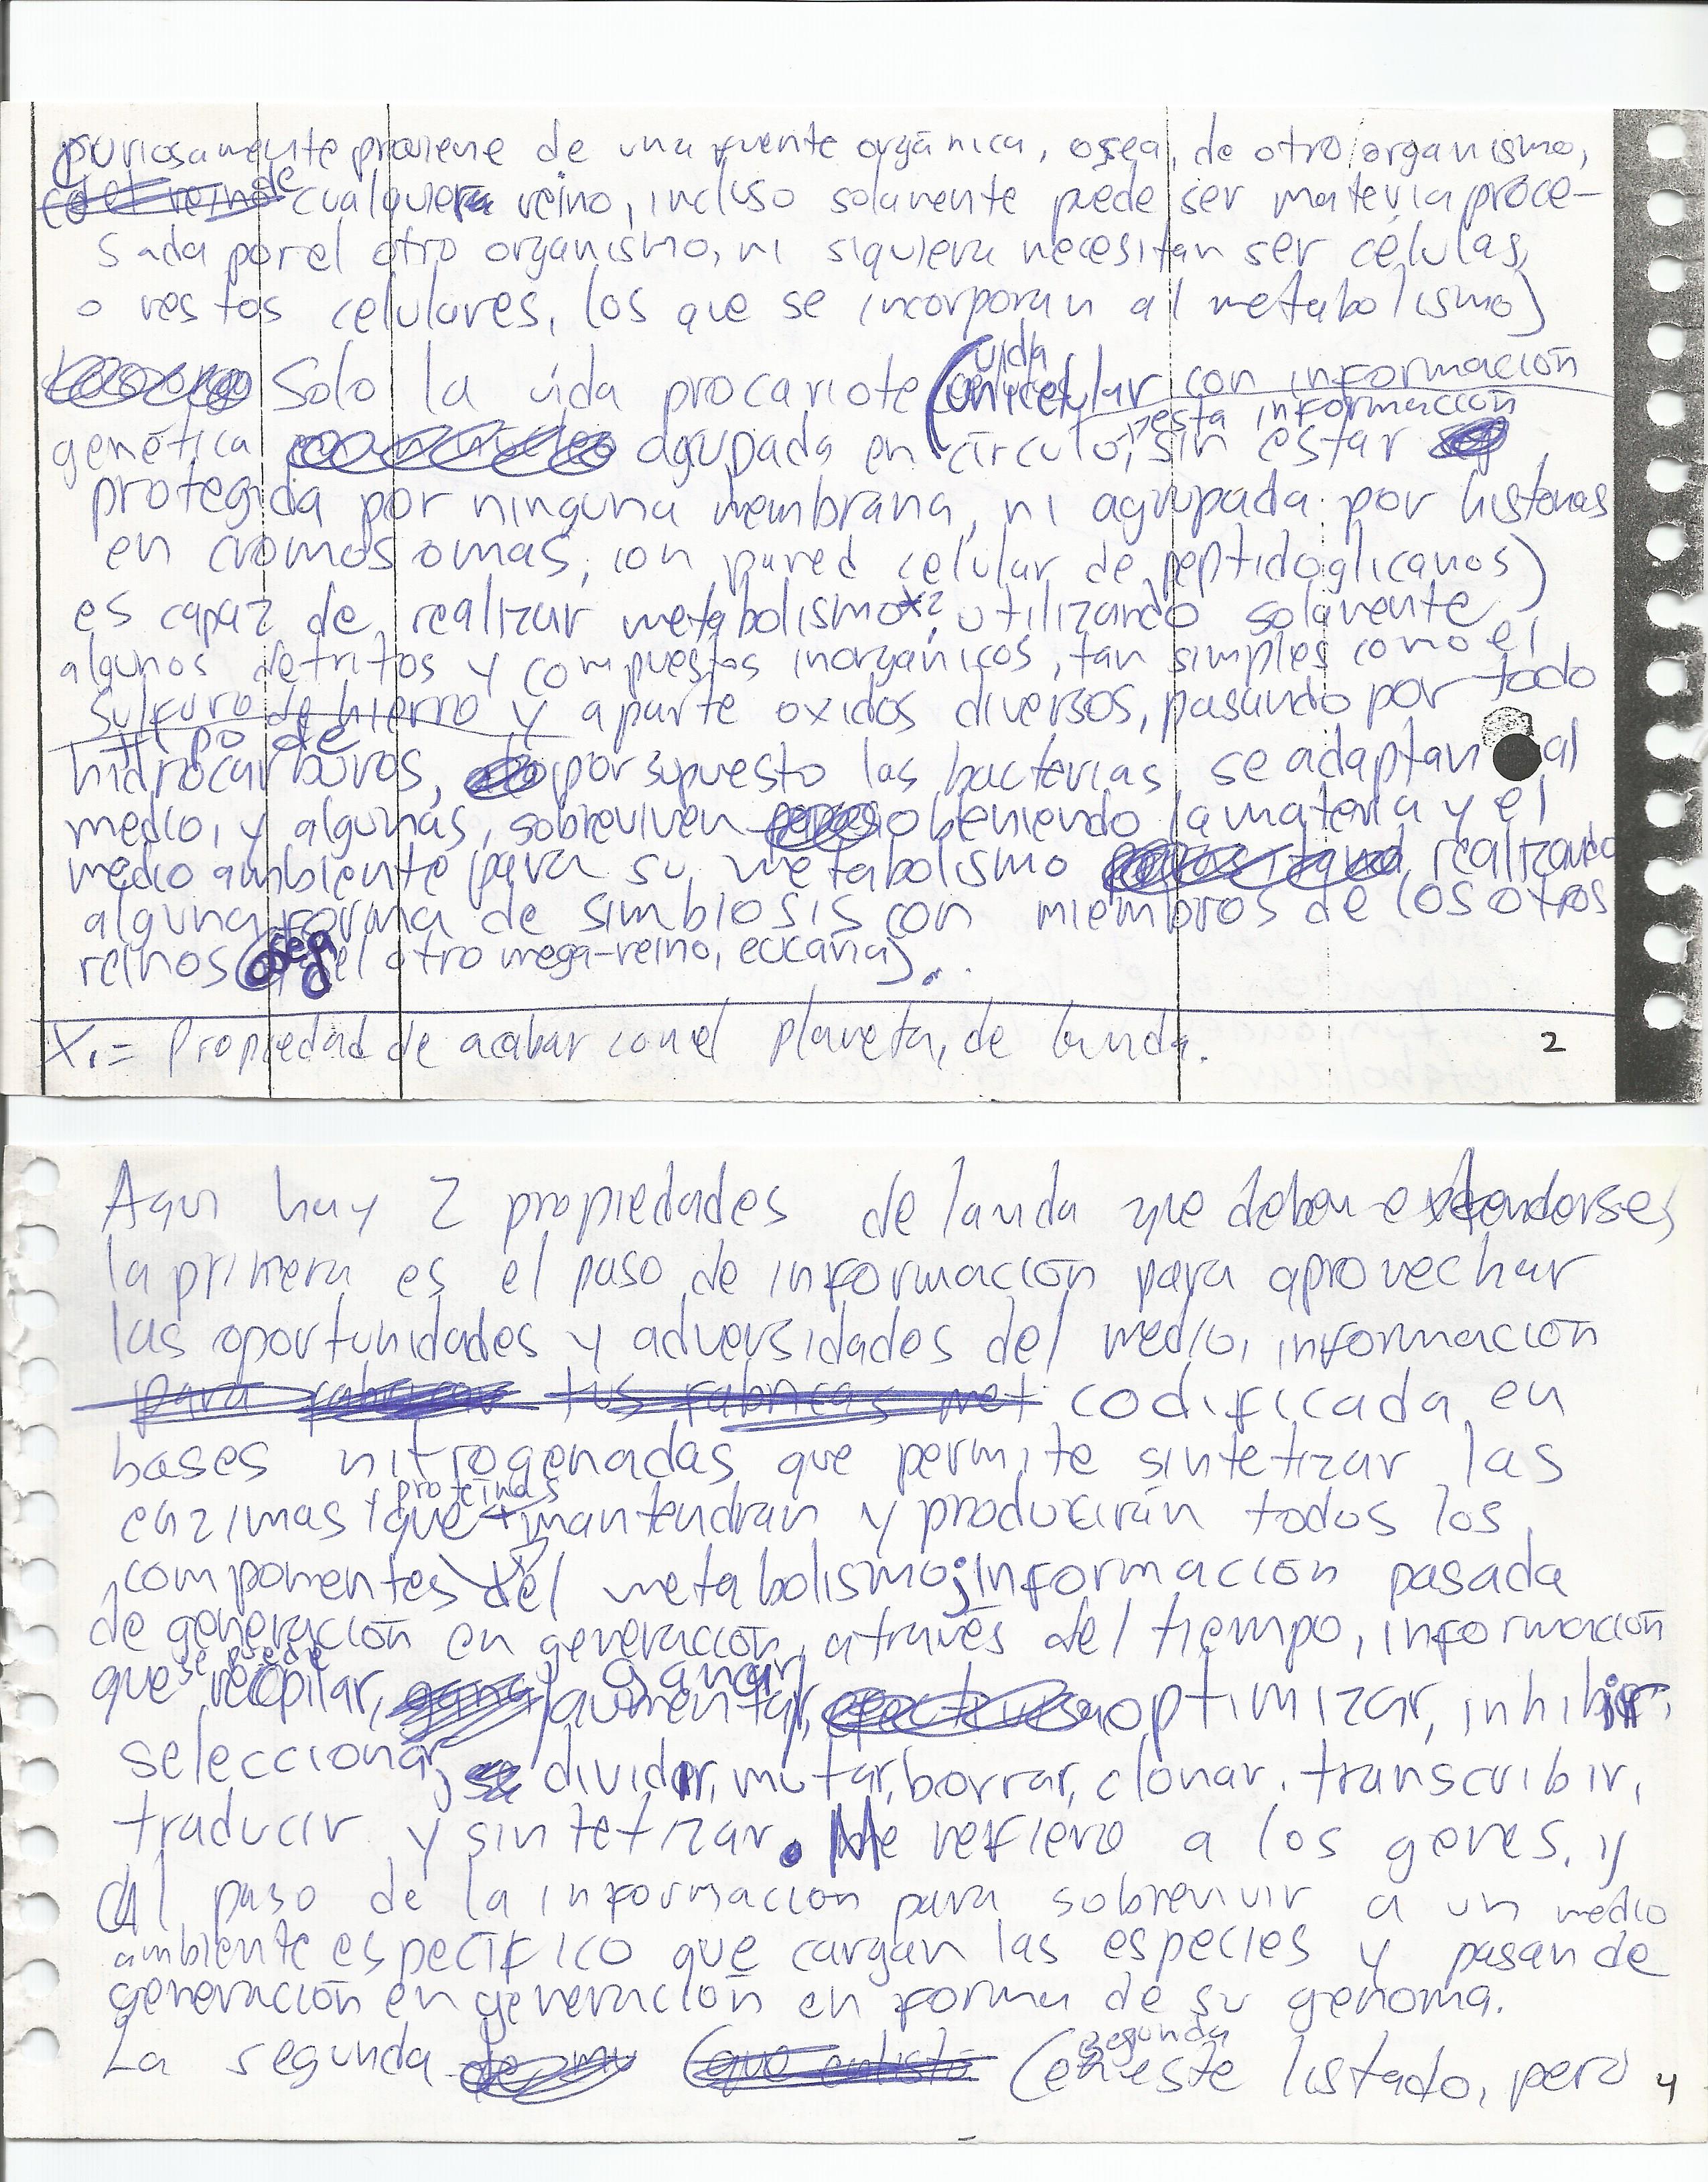 curiosamente proviene de una fuente orgánica, osea, de otro organismo,
de cualquiera reino, incluso solamente puede ser materia proce-
sada por el otro organismo, ni siquiera necesitan ser células,
o restos celulares, los que se incorporan al metabolismo)
Solo la vida procariote (vida unicelular con información
genética agrupada en círculo, esta información sin estar
protegida por ninguna membrana, ni agrupada por histonas
en cromosomas, con pared celular de peptidoglicanos)
es capaz de realizar metabolismo*2, utilizando solamente
algunos detritos y compuestos inorgánicos, tan simples como el
sulfuro de hierro y aparte oxidos diversos, pasando por todo
tipo de
hidrocarburos, por supuesto las bacterias se adaptan al
medio, y algunas, sobreviven obteniendo la materia y el
medio ambiente para su metabolismo realizando
alguna forma de simbiosis con miembros de los otros
reinos (osea del otro mega-reino, eucaria)..
X1= Propiedad de acabar con el planeta, de la vida.
2
Aqui hay 2 propiedades de la vida que deben extenderse,
la primera es el paso de información para aprovechar
las oportunidades y adversidades del medio, información
codificada en
bases nitrogenadas que permite sintetizar las
enzimas y proteinas que mantendran y producirán todos los
componentes del metabolismo; información pasada
de generación en generación, através del tiempo, información
que se puede recopilar, ganar, aumentar, optimizar, inhibir,
seleccionar, dividir, mutar, borrar, clonar, transcribir,
traducir y sintetizar. Me refiero a los genes, y
al paso de la informacion para sobrevivir a un medio
ambiente específico que cargan las especies y pasan de
generación en generación en forma de su genoma.
La segunda (segunda en este listado, pero
4